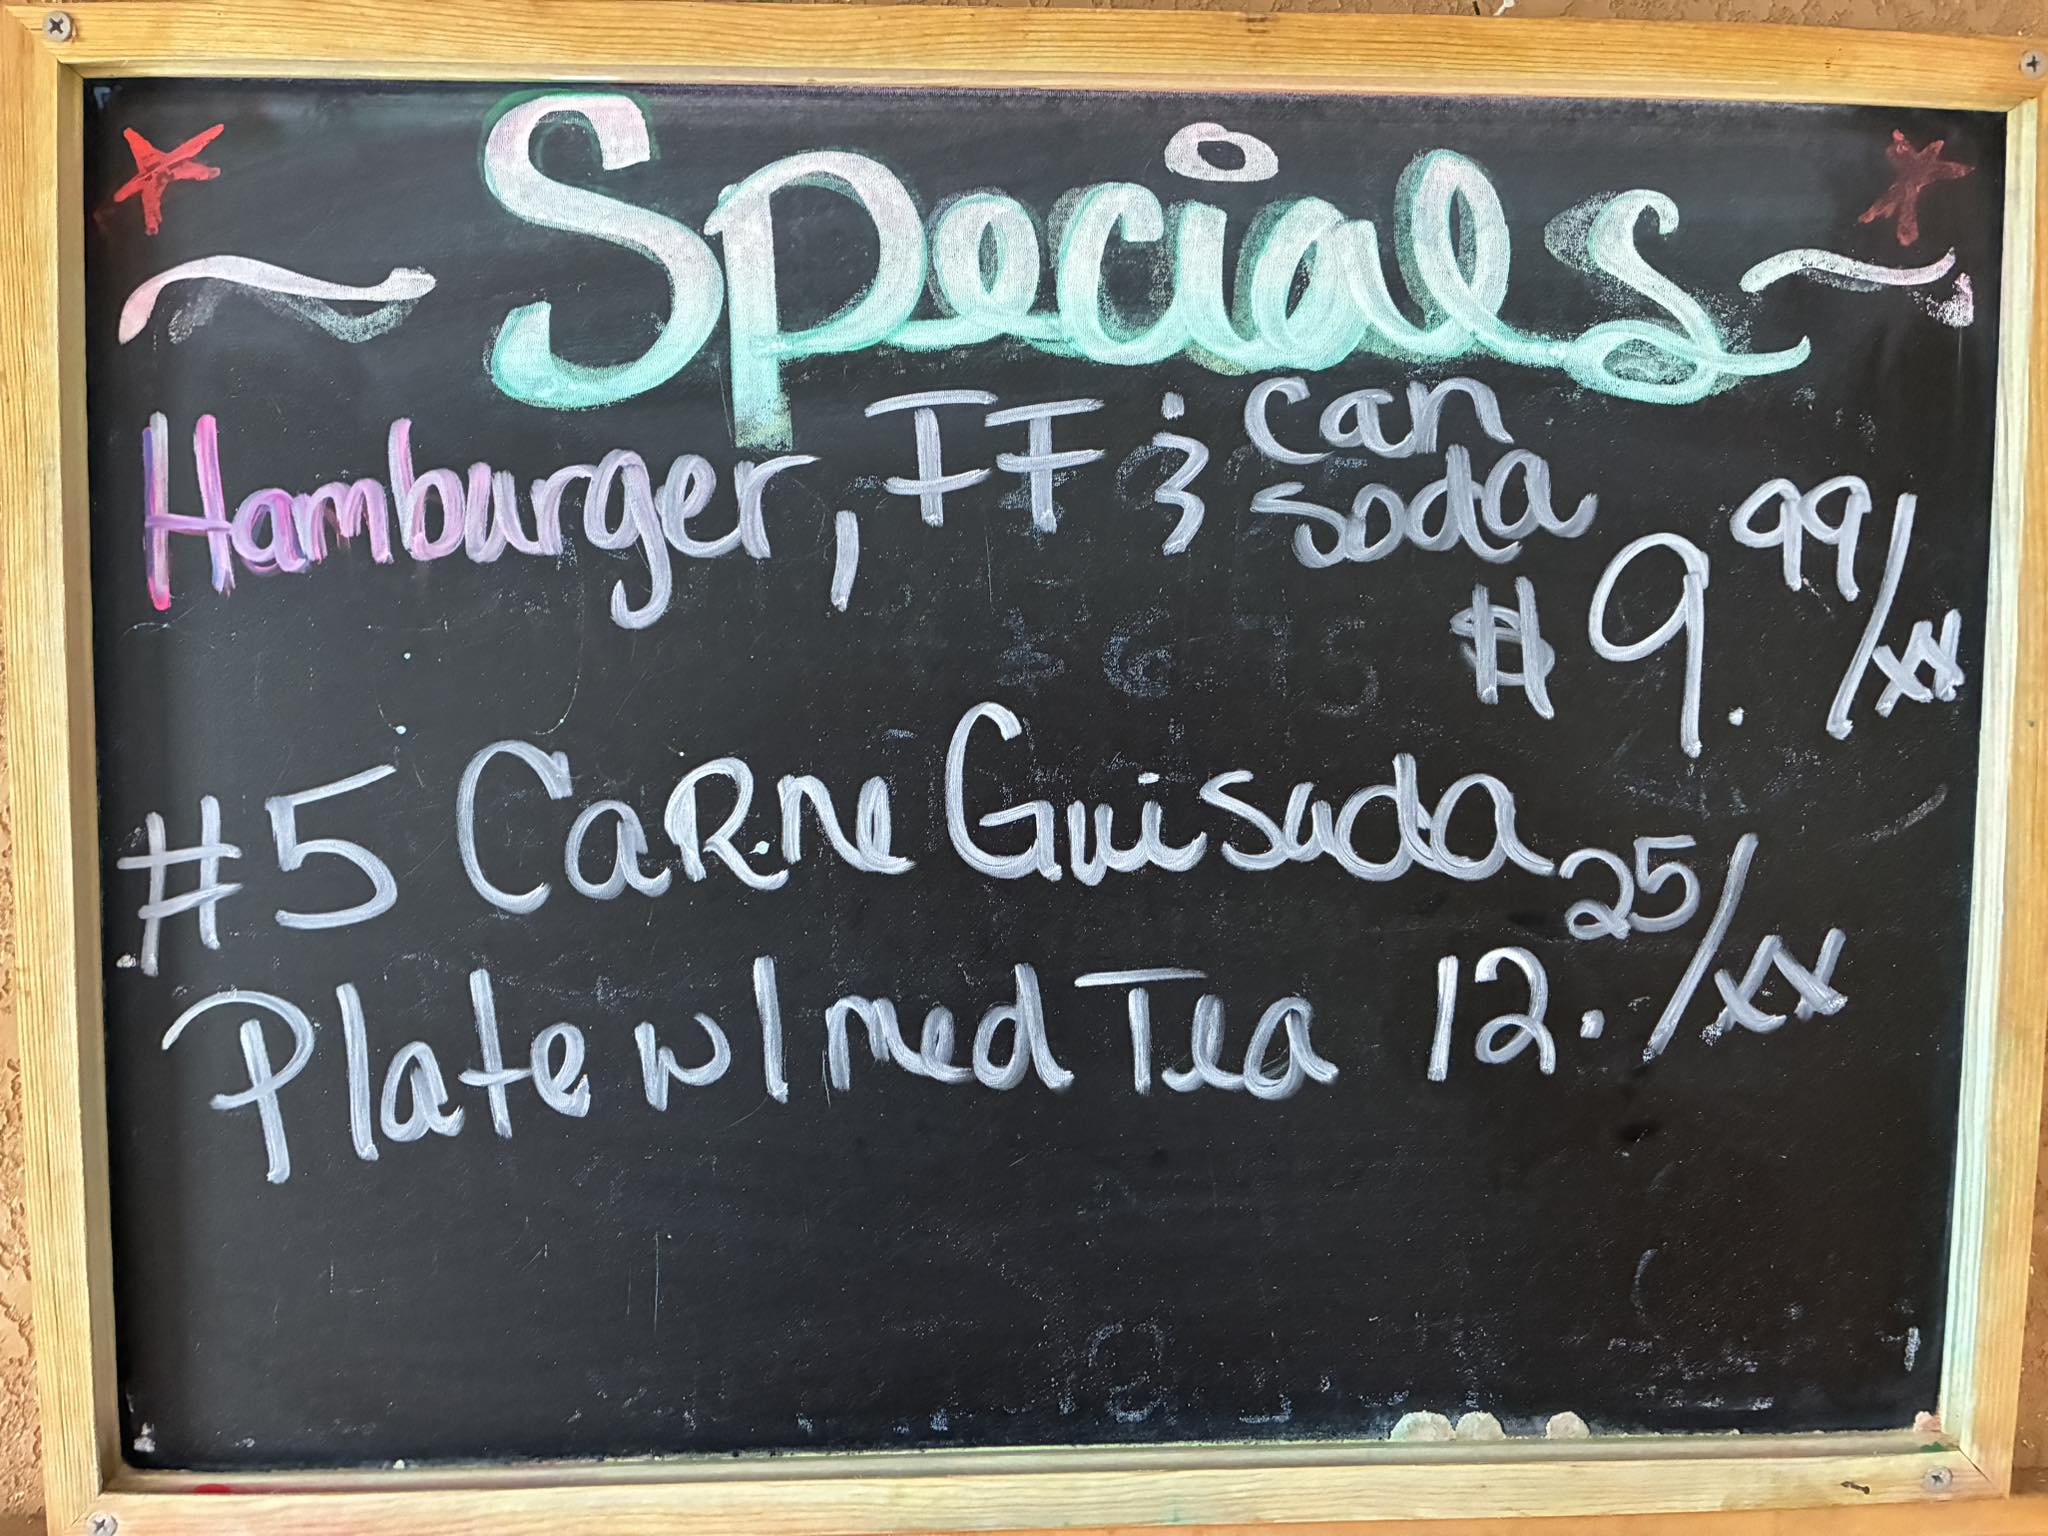 ~ Specials ~
Hamburger, FF & can soda
$9.99/xx
#5 CaRne Guisada
Plate w/ med Tea 12.25/xx